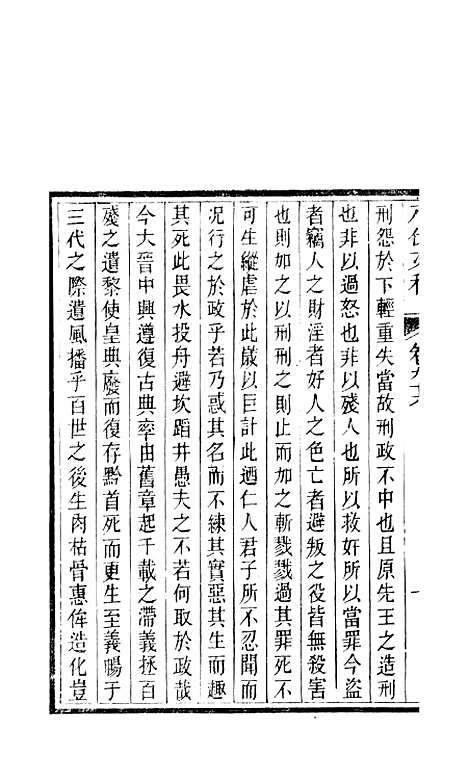 刑怨於下輕重失當故刑政不中也且原先王之造刑
也非以過怒也非以殘人也所以救奸所以當罪今盜
者竊人之財淫者好人之色亡者避叛之役皆無殺害
也則加之以刑刑之則止而加之斬戮戮過其罪死不
可生縱虐於此歲以巨計此迺仁人君子所不忍聞而
况行之於政乎若乃惑其名而不練其實惡其生而趣
其死此畏水投舟避坎蹈井愚夫之不若何取於政哉
今大晉中興遵復古典率由舊章起千載之滯義拯百
殘之遺黎使皇典廢而復存黔首死而更生至義暢于
三代之際遺風播乎百世之後生肉枯骨惠侔造化豈